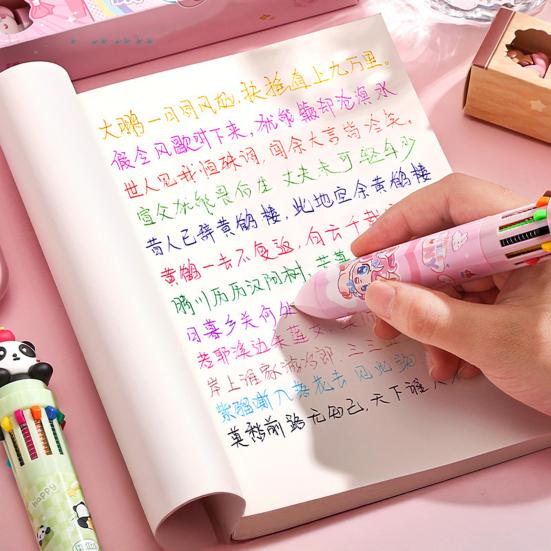 大鹏一日同风起,扶摇直上九万里。
假令风歇时下来,犹能簸却沧溟水
世人见我恒殊调,闻余大言皆冷笑。
宣父犹能畏后生 丈夫未可轻年少
昔人已辞黄鹤楼,此地空余黄鹤楼
黄鹤一去不复返,白云千载
晴川历历汉阳树,芳草
日暮乡关何处
若耶溪边采莲女,笑
岸上谁家游冶郎 三三
紫骝嘶入落花去 见此踟
莫愁前路无知己,天下谁人
HAPPY